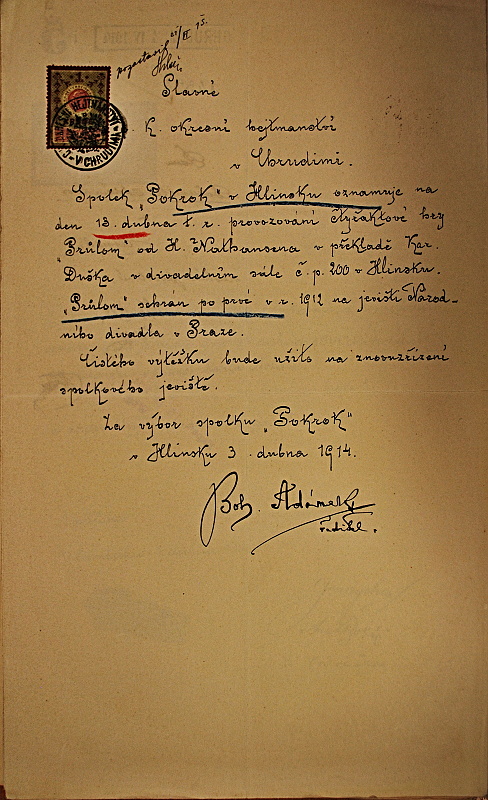 Slavné
k. okresní hejtmanství
v Chrudimi.
Spolek „Pokrok" v Hlinsku oznamuje na
den 13. dubna t. r. provozování čtyřaktové hry
„Průlom" od H. Nathansena v překladě Kar.
Duška v divadelním sále č. p. 200 v Hlinsku.
„Průlom" sehrán po prvé v r. 1912 na jevišti Národ-
ního divadla v Praze.
Čistého výtěžku bude užito na znovuzřízení
spolkového jeviště.
Za výbor spolku „Pokrok"
v Hlinsku 3. dubna 1914.
Boh. Adámek
ředitel.